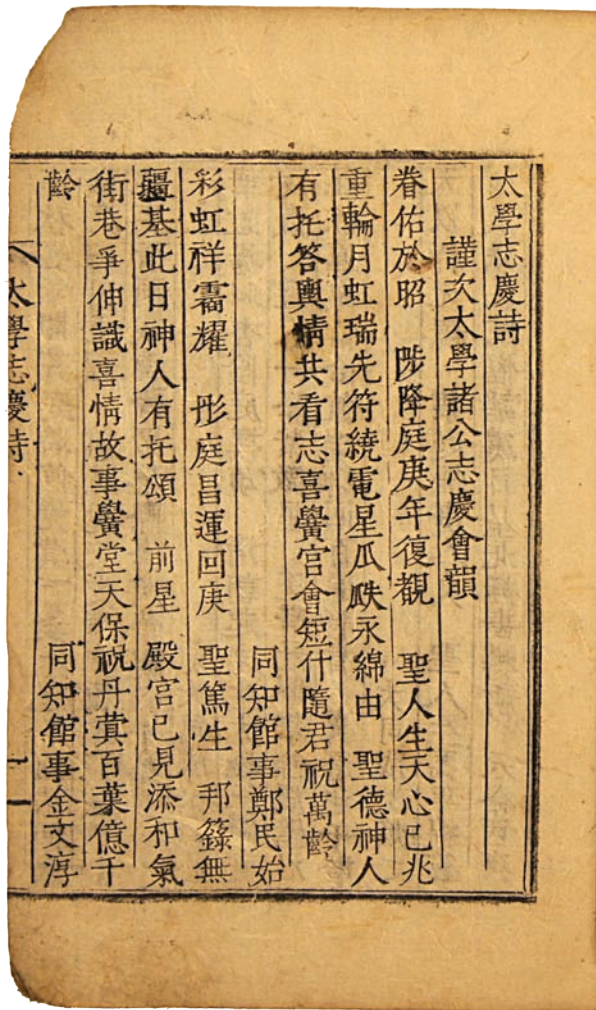 太學志慶詩
謹次太學諸公志慶會韻
眷佑於昭 陟降庭庚年復覩 聖人生天心已兆
重輪月虹瑞先符繞電星瓜瓞永綿由 聖德神人
有托答輿情共看志喜黌宮會短什隨君祝萬齡
同知館事鄭民始
彩虹祥霱耀 彤庭昌運回庚 聖篤生 邦籙無
疆基此日神人有托頌 前星 殿宮已見添和氣
街巷爭伸識喜情故事黌堂天保祝丹蓂百葉億千
齡
同知館事金文淳
太學志慶詩
一